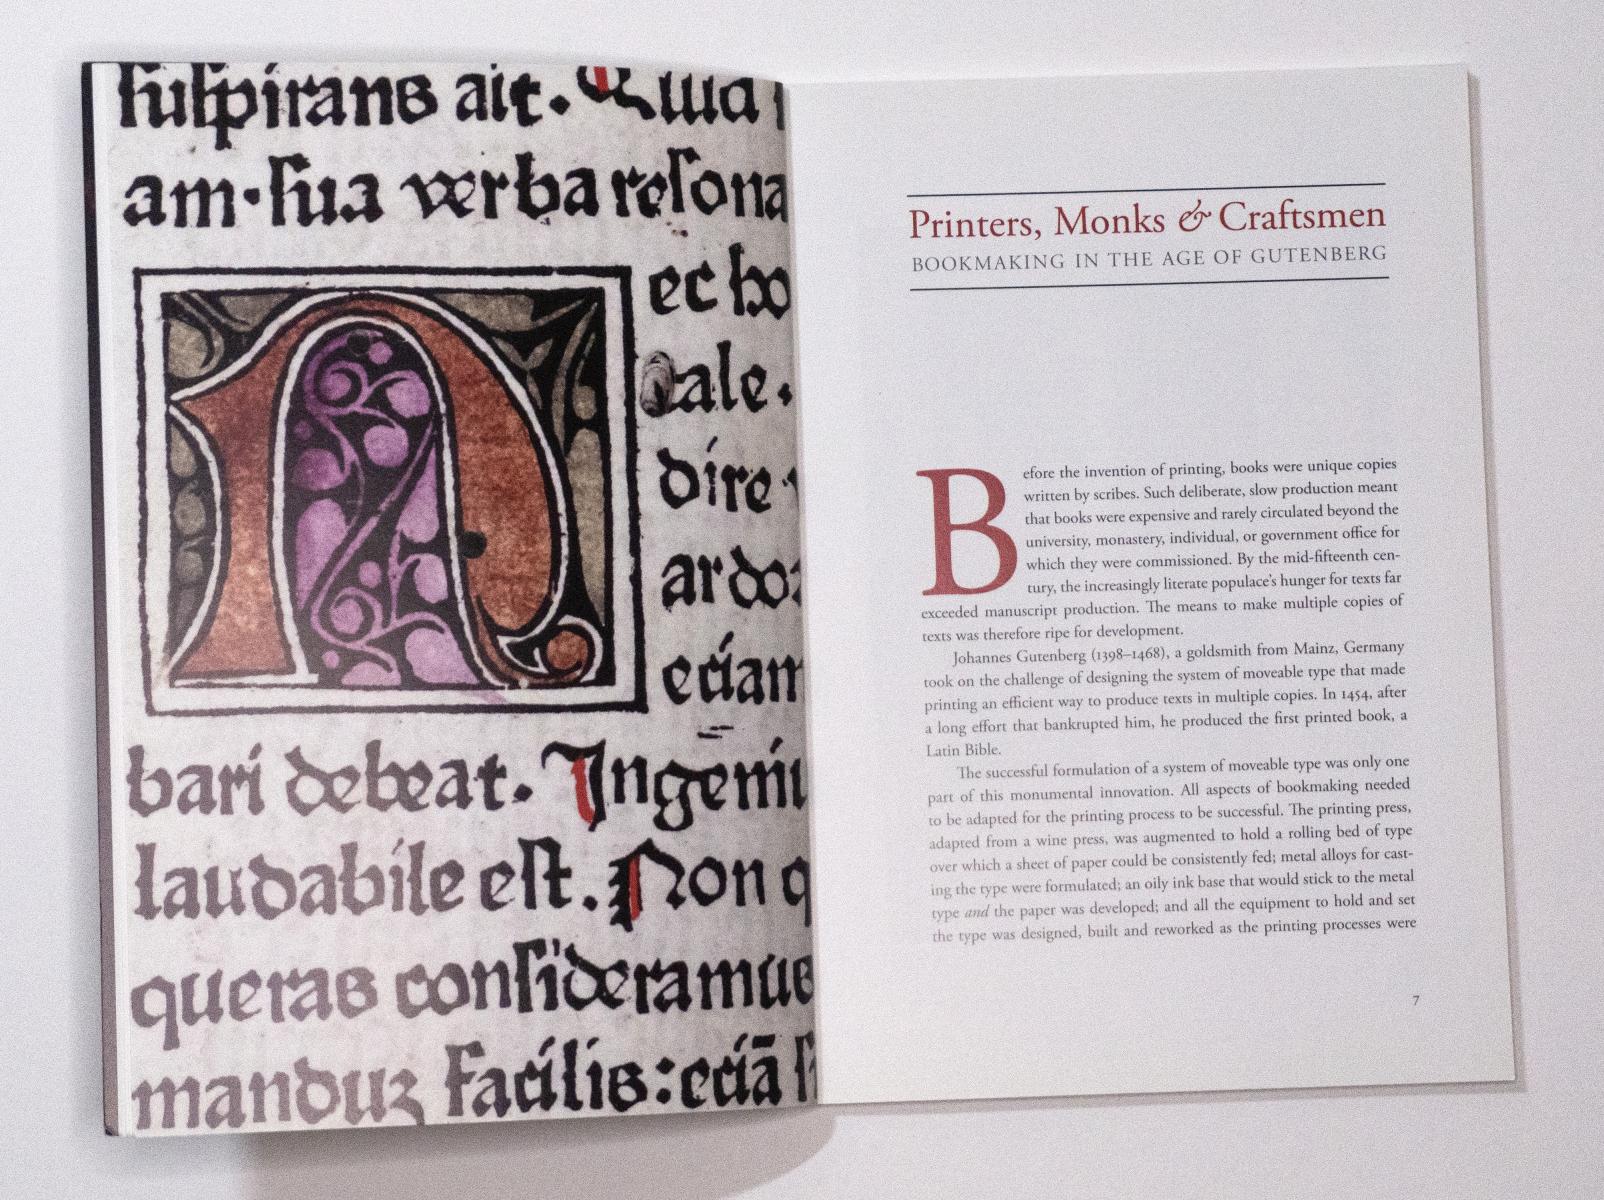 suspirans ait. Quia
am·sua verba resona
ec ho
ale.
dire
ardoꝛ
eciam
bari debeat. Ingeniu
laudabile est. Non q
queras consideramus
manduꝫ facilis: eciā si
Printers, Monks & Craftsmen
BOOKMAKING IN THE AGE OF GUTENBERG
Before the invention of printing, books were unique copies
written by scribes. Such deliberate, slow production meant
that books were expensive and rarely circulated beyond the
university, monastery, individual, or government office for
which they were commissioned. By the mid-fifteenth cen-
tury, the increasingly literate populace's hunger for texts far
exceeded manuscript production. The means to make multiple copies of
texts was therefore ripe for development.
Johannes Gutenberg (1398–1468), a goldsmith from Mainz, Germany
took on the challenge of designing the system of moveable type that made
printing an efficient way to produce texts in multiple copies. In 1454, after
a long effort that bankrupted him, he produced the first printed book, a
Latin Bible.
The successful formulation of a system of moveable type was only one
part of this monumental innovation. All aspects of bookmaking needed
to be adapted for the printing process to be successful. The printing press,
adapted from a wine press, was augmented to hold a rolling bed of type
over which a sheet of paper could be consistently fed; metal alloys for cast-
ing the type were formulated; an oily ink base that would stick to the metal
type and the paper was developed; and all the equipment to hold and set
the type was designed, built and reworked as the printing processes were
7